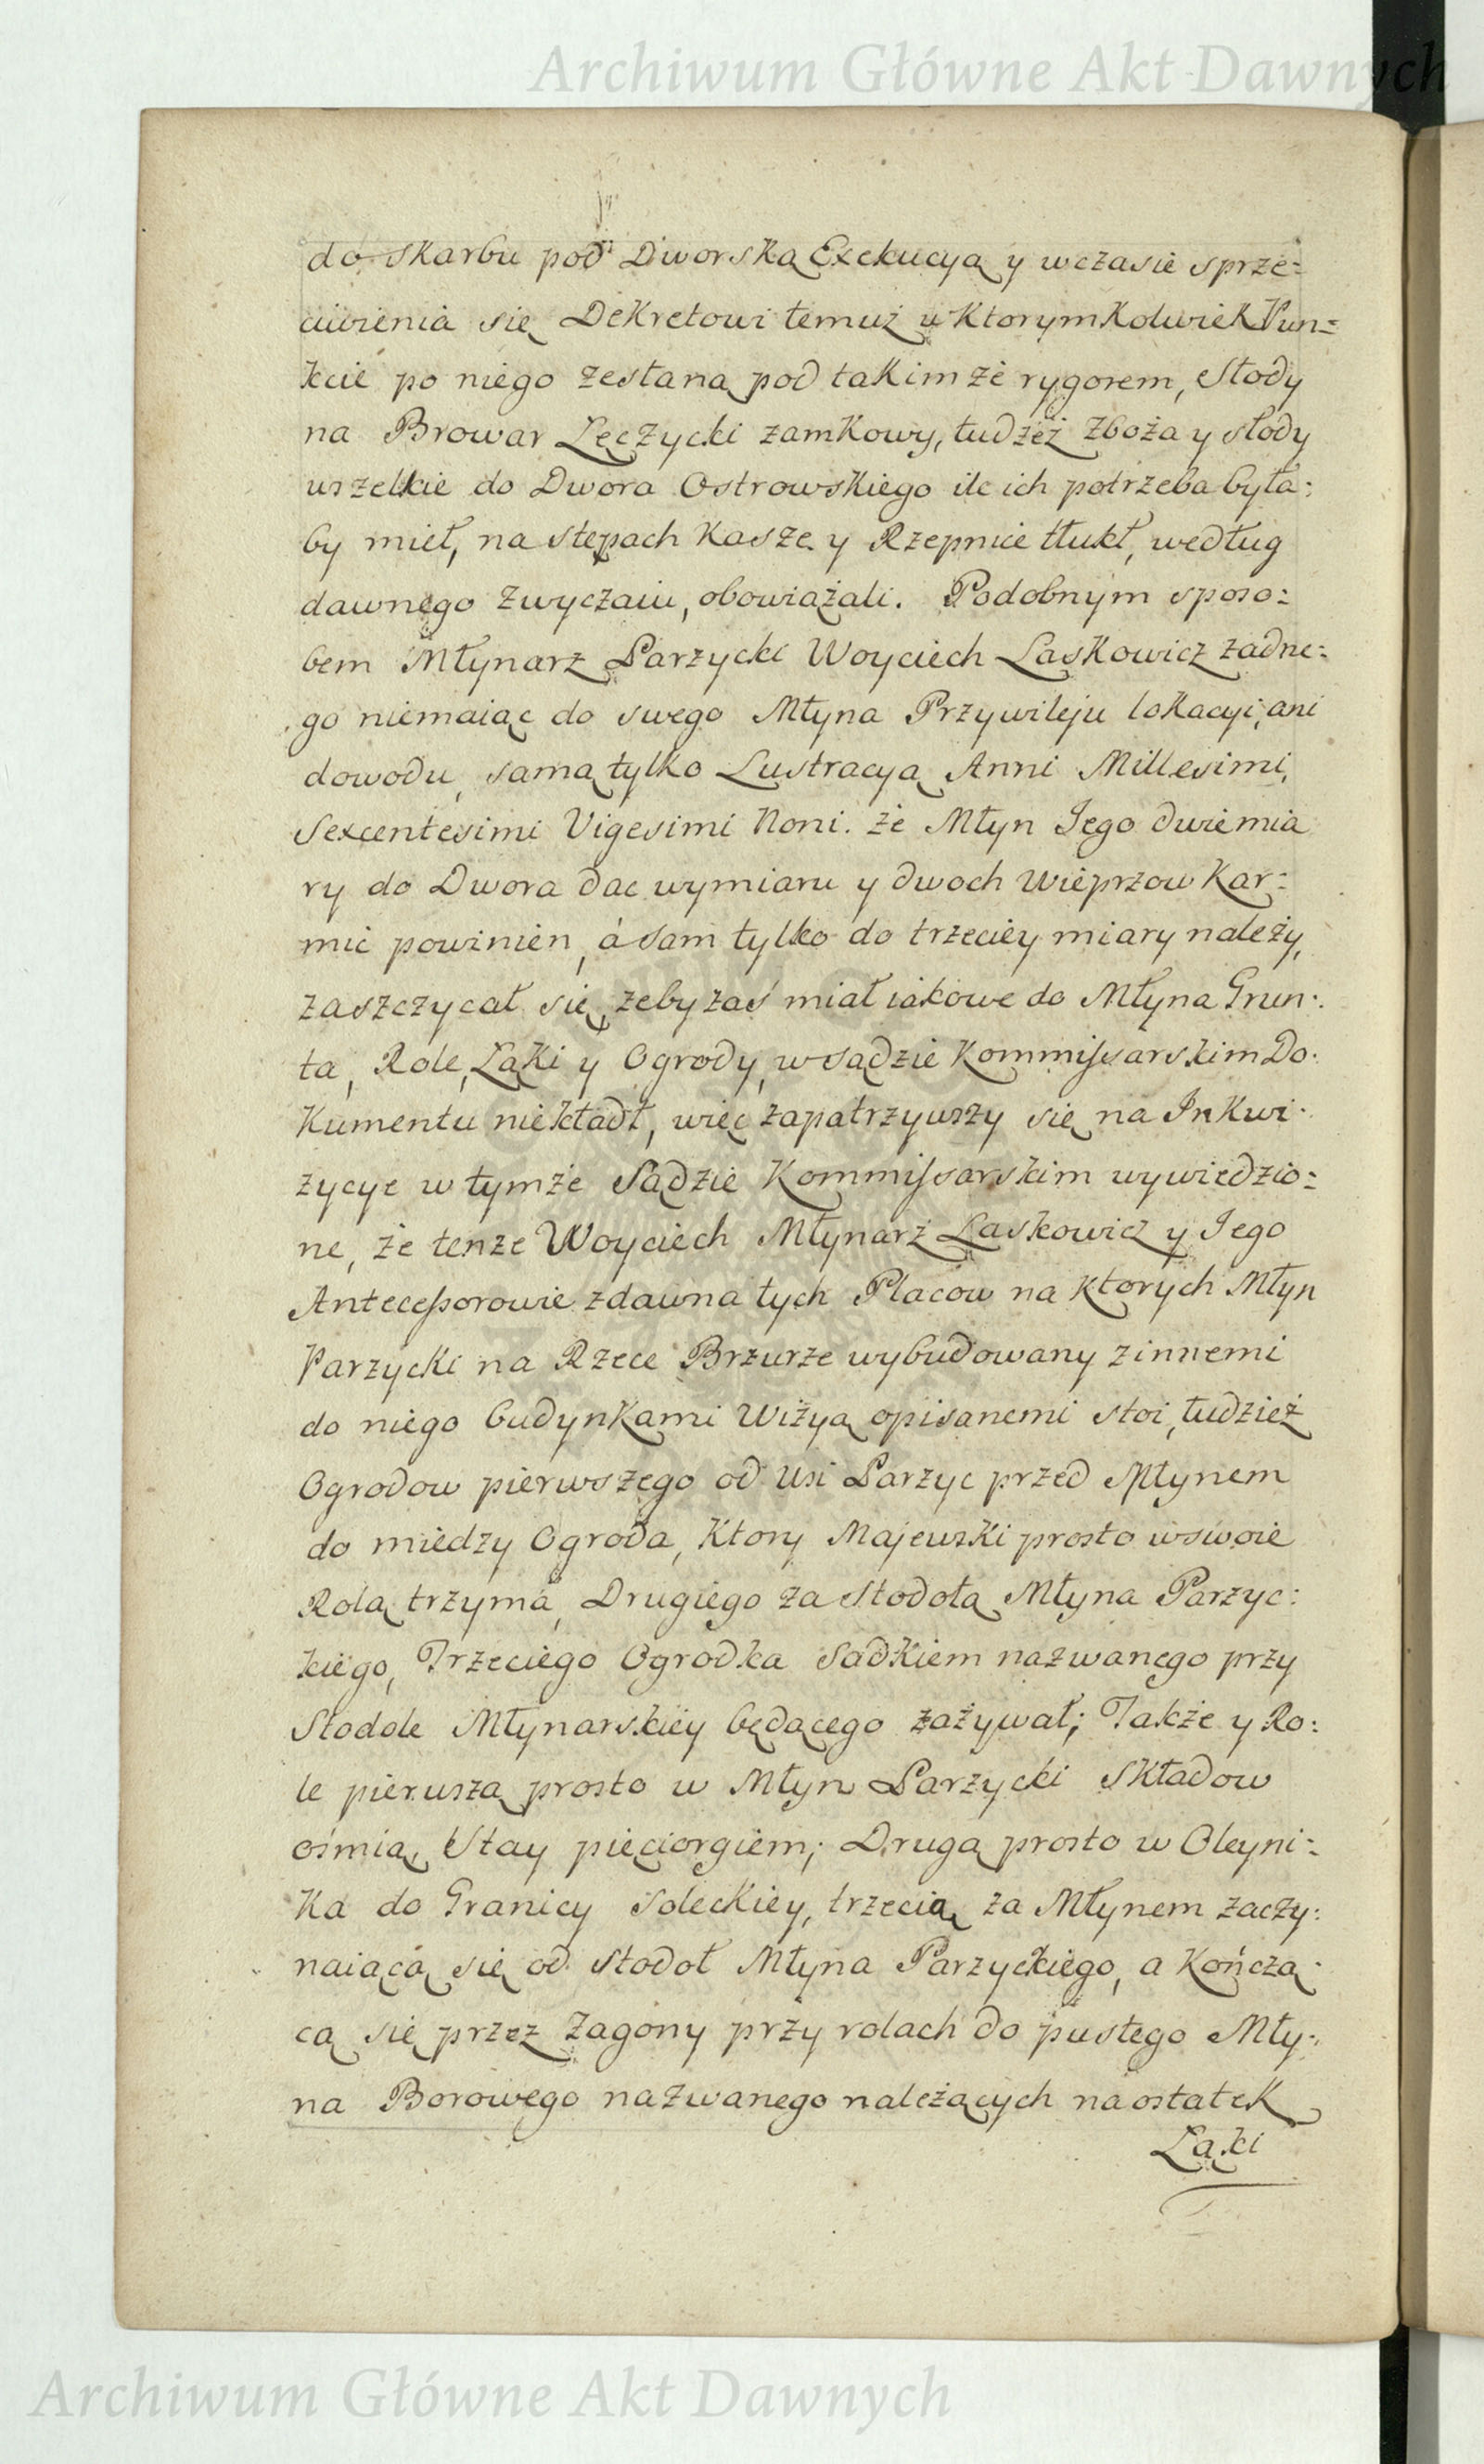 Archiwum Główne Akt Dawnych
do skarbu pod Dworską Exekucyą y wczasie sprze=
ciwienia się Dekretowi temuż w Ktorymkolwiek Pun=
kcie po niego zesłaną pod takimże rygorem, Słody
na Browar Łęczycki zamkowy, tudzież Zboża y słody
wszelkie do Dwora Ostrowskiego ile ich potrzeba była=
by mieł, na stępach Kaszę y Rzepnice tłukł, według
dawnego zwyczaiu, obowiązali. Podobnym sposo=
bem Młynarz Parzycki Woyciech Laskowicz żadne=
go niemaiąc do swego Młyna Przywileju lokacyi, ani
dowodu, samą tylko Lustracyą Anni Millesimi,
Sexcentesimi Vigesimi Noni. że Młyn Jego dwie mia
ry do Dwora dac wymiaru y dwoch wieprzow Kar=
mić powinien, á sam tylko do trzeciey miary należy,
zaszczycał się, żeby zaś miał iakowe do Młyna Grun=
ta, Role, Łąki y Ogrody, w sądzie Kommissarskim Do=
kumentu niekładł, więc zapatrzywszy się na Inkwi=
zycye w tymże Sądzie Kommissarskim wywiedzio=
ne, że tenże Woyciech Młynarz Laskowicz y Jego
Antecessorowie zdawna tych Placow na ktorych Młyn
Parzycki na Rzece Brzurze wybudowany z innemi
do niego budynkami Wizyą opisanemi stoi, tudzież
Ogrodow pierwszego od wsi Parzyc przed Młynem
do miedzy Ogroda, Ktory Majewski prosto wswoie
Rolą trzyma, Drugiego za Stodołą Młyna Parzyc=
kiego, Trzeciego Ogrodka Sadkiem nazwanego przy
Stodole Młynarskiey będącego zażywał; Także y Ro=
le pierwszą prosto w Młyn Parzycki Składow
ośmią, Stay pięciorgiem; Drugą prosto w Oleyni=
ka do Granicy Soleckiey, trzecią za Młynem zaczy=
naiącą się od Stodoł Młyna Parzyckiego, a Kończą=
cą się przez Zagony przy rolach do pustego Mły=
na Borowego nazwanego należących naostatek
Łąki
Archiwum Główne Akt Dawnych